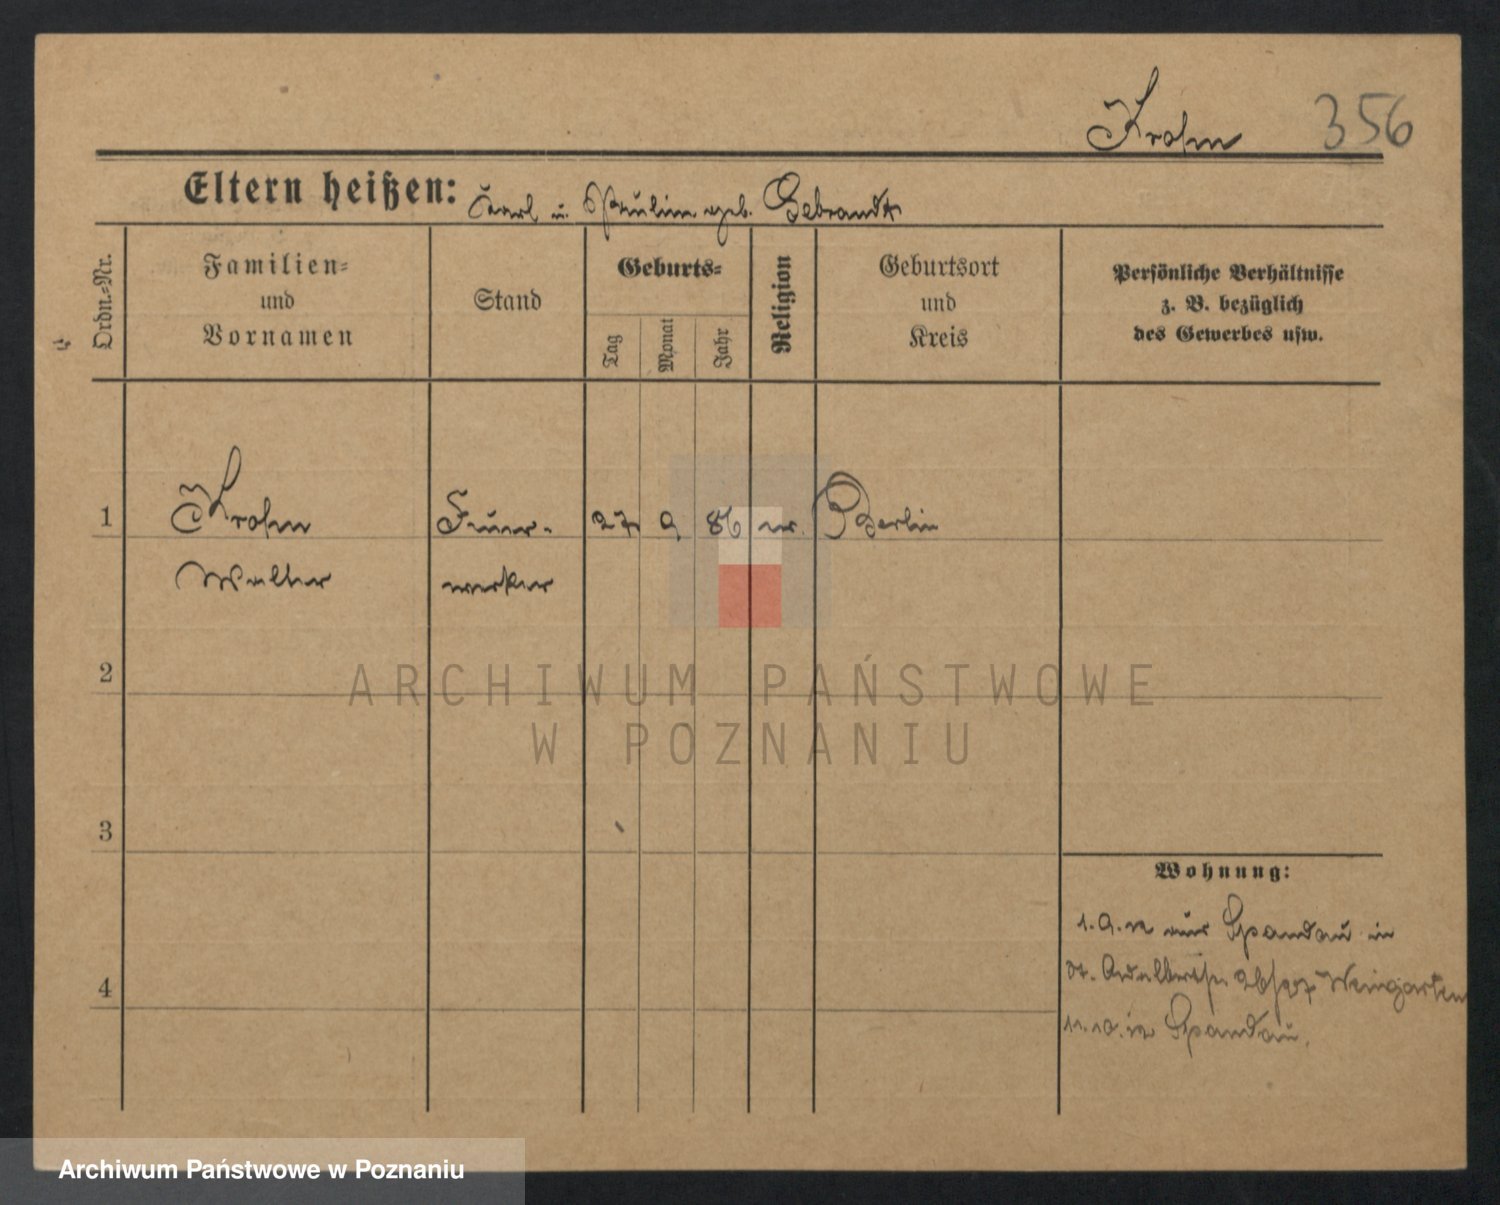 Krohn 356
Eltern heißen: Carl u. Pauline geb. Gebrandt
Ordn.-Nr.
Familien-
und
Vornamen
Stand
Geburts-
Tag
Monat
Jahr
Religion
Geburtsort
und
Kreis
Persönliche Verhältnisse
z. B. bezüglich
des Gewerbes usw.
1 Krohn Feuer- 27 9 86 ev. Berlin
Walter werker
2
ARCHIWUM PAŃSTWOWE
W POZNANIU
3
Wohnung:
1.9.12 aus Spandau in
St. Adalbertstr. 26/27 Weingarten
4
11.10.12 Spandau.
Archiwum Państwowe w Poznaniu